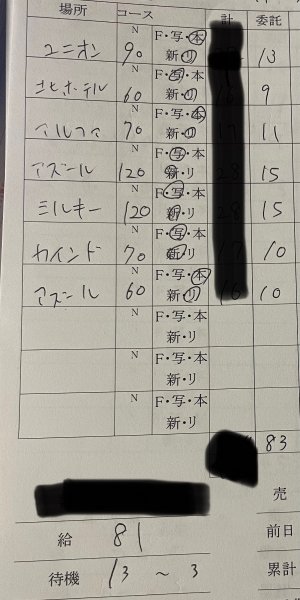 場所 コース 計 委託
N F・写・本
ユニオン 90 新・リ 13
N F・写・本
60 新・リ 9
N F・写・本
アルファ 70 新・リ 11
N F・写・本
アズール 120 新・リ 15
N F・写・本
ミルキー 120 新・リ 15
N F・写・本
カインド 70 新・リ 10
N F・写・本
アズール 60 新・リ 10
N F・写・本
新・リ
N F・写・本
新・リ
N F・写・本
新・リ
83
売
給 81 前日
待機 13 ～ 3 累計